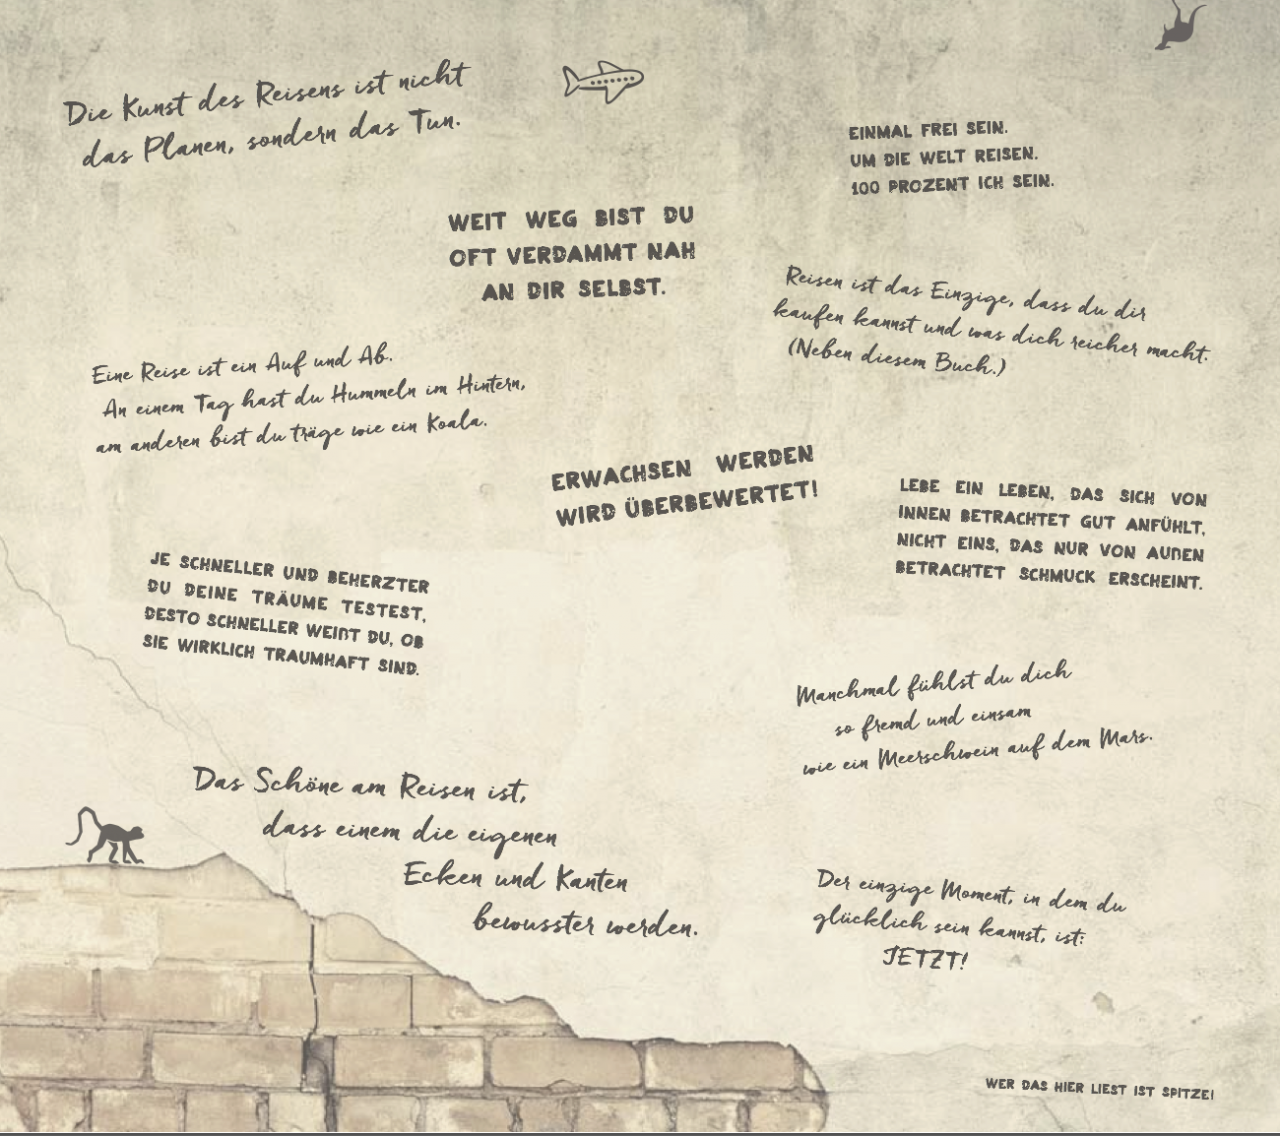 Die Kunst des Reisens ist nicht
das Planen, sondern das Tun.
EINMAL FREI SEIN.
UM DIE WELT REISEN.
100 PROZENT ICH SEIN.
WEIT WEG BIST DU
OFT VERDAMMT NAH
AN DIR SELBST.
Reisen ist das Einzige, dass du dir
kaufen kannst und was dich reicher macht.
(Neben diesem Buch.)
Eine Reise ist ein Auf und Ab.
An einem Tag hast du Hummeln im Hintern,
am anderen bist du träge wie ein Koala.
ERWACHSEN WERDEN
WIRD ÜBERBEWERTET!
LEBE EIN LEBEN, DAS SICH VON
INNEN BETRACHTET GUT ANFÜHLT,
NICHT EINS, DAS NUR VON AUßEN
BETRACHTET SCHMUCK ERSCHEINT.
JE SCHNELLER UND BEHERZTER
DU DEINE TRÄUME TESTEST,
DESTO SCHNELLER WEIßT DU, OB
SIE WIRKLICH TRAUMHAFT SIND.
Manchmal fühlst du dich
so fremd und einsam
wie ein Meerschwein auf dem Mars.
Das Schöne am Reisen ist,
dass einem die eigenen
Ecken und Kanten
bewusster werden.
Der einzige Moment, in dem du
glücklich sein kannst, ist:
JETZT!
WER DAS HIER LIEST IST SPITZE!